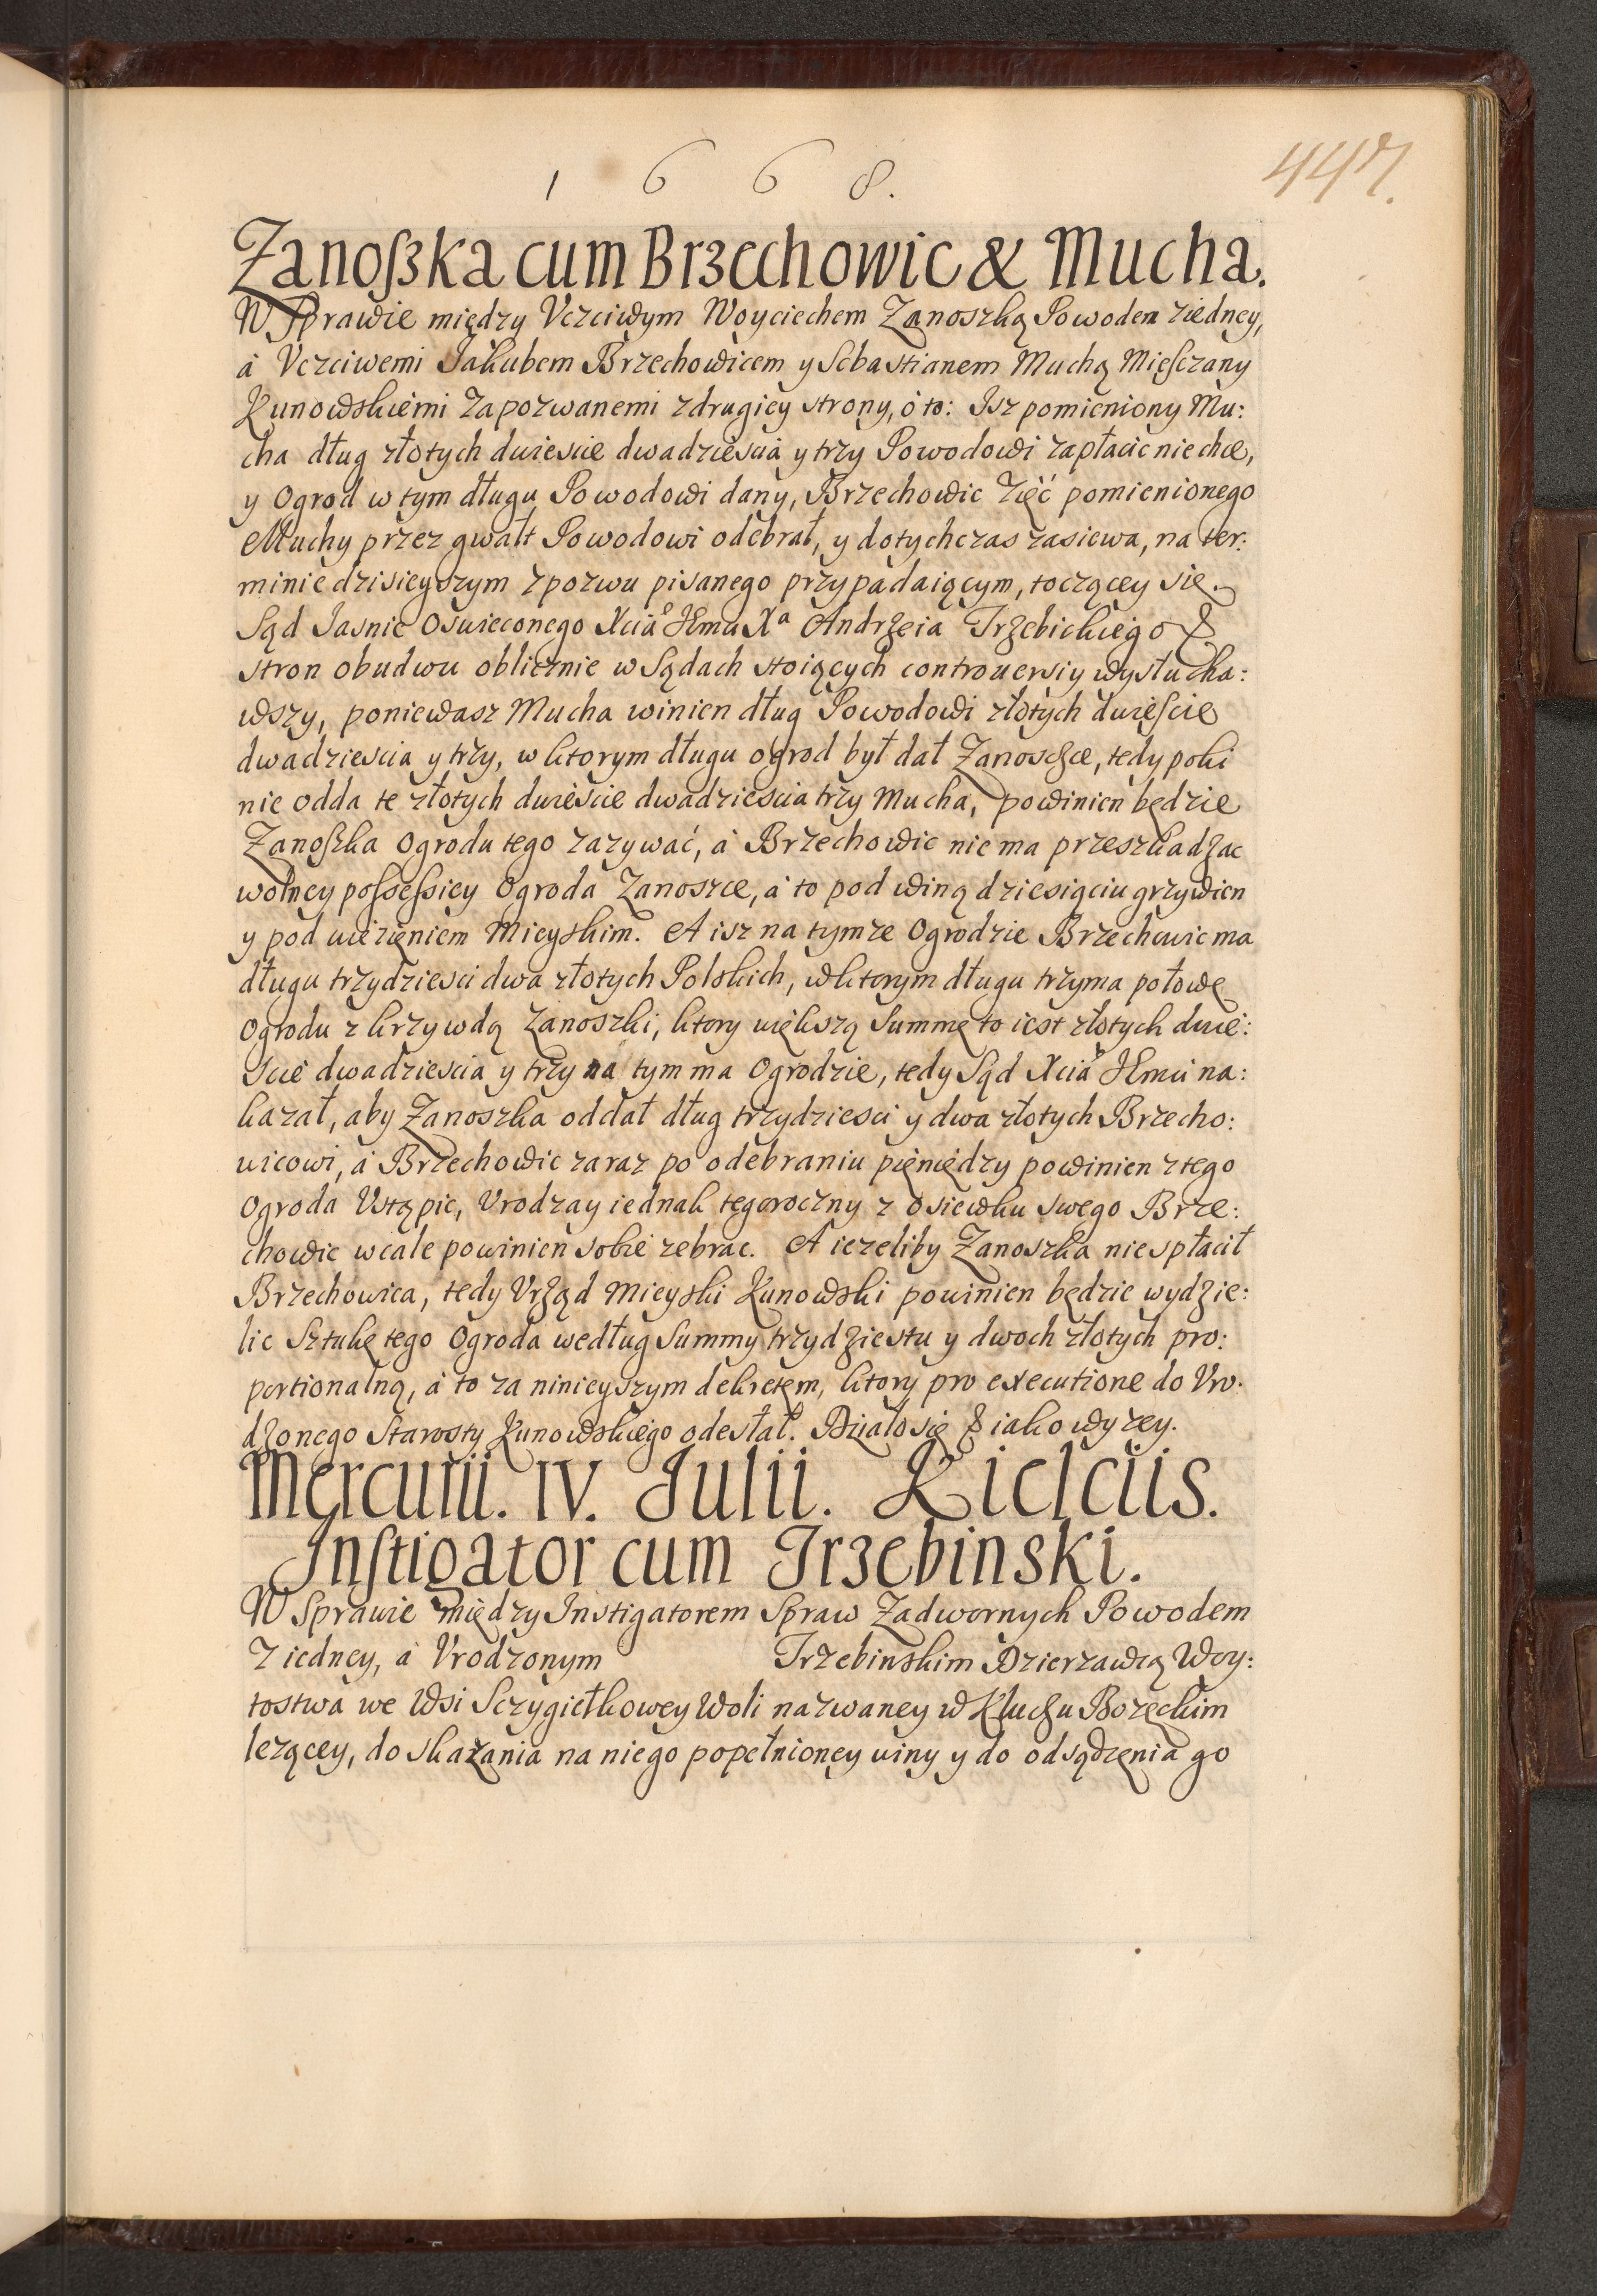 1668.
447.
Zanoſzka cum Brzechowic & Mucha.
W Sprawie między Vczciwym Woyciechem Zanoszką Powodem ziedney,
á Vczciwemi Iakubem Brzechowicem y Sebastianem Muchą Mieſczany
Kunowskiemi Zapozwanemi zdrugiey strony, ó to: Isz pomieniony Mu:
cha dług złotych dwiescie dwadziescia y trzy Powodowi zapłacic niechce,
y Ogrod w tym długu Powodowi dany, Brzechowic Zięć pomienionego
Muchy przez gwałt Powodowi odebrał, y dotychczas zasiewa, na ter:
minie dzisieyszym z pozwu pisanego przypadaiącym, toczącey sie
Sąd Iasnie Oswieconego Xciá Jłmu Xa Andrzeia Trzebickiego &
stron obudwu oblicznie w Sądach stoiących controuersiy wysłucha:
wszy, poniewasz Mucha winien dług Powodowi złotych dwieſcie
dwadziescia y trzy, w ktorym długu ogrod był dał Zanoszce, tedy poki
nie odda te złotych dwiescie dwadziescia trzy Mucha, powinien będzie
Zanoſzka Ogrodu tego zazywać, á Brzechowic nie ma przeszkadzac
wolney poſseſsiey Ogroda Zanoszce, á to pod winą dziesiąciu grzywien
y pod więzięniem Mieyskim. A isz na tymze Ogrodzie Brzechowic ma
długu trzydziesci dwa złotych Polskich, w ktorym długu trzyma połowę
Ogrodu z krzywdą Zanoszki, ktory większą Summę to iest złotych dwie:
scie dwadziescia y trzy na tym ma Ogrodzie, tedy Sąd Xciá Jłmu na:
kazał, aby Zanoszka oddał dług trzydziesci y dwa złotych Brzecho:
wicowi, á Brzechowic zaraz po odebraniu pięniędzy powinien z tego
Ogroda Vstąpic, Vrodzay iednak tegoroczny z osiewku swego Brze:
chowic wcale powinien sobie zebrac. A iezeliby Zanoszka nie spłacił
Brzechowica, tedy Vrząd Mieyski Kunowski powinien będzie wydzie:
lic Sztukę tego Ogroda według Summy trzydziestu y dwoch złotych pro:
portionalną, á to za ninieyszym dekretęm, ktory pro executione do Vro:
dzonego Starosty Kunowskiego odesłał. Działo się & iako wyzey.
Mercurii. IV. Julii. Kielciis.
Inſtigator cum Trzebinski.
W Sprawie między Instigatorem Spraw Zadwornych Powodem
z iedney, á Vrodzonym Trzebinskim Dzierzawcą Woy:
tostwa we Wsi Sczygiełkowey Woli nazwaney w Kluczu Bozęckim
lezącey, do skazania na niego popełnioney winy y do odsądzęnia go